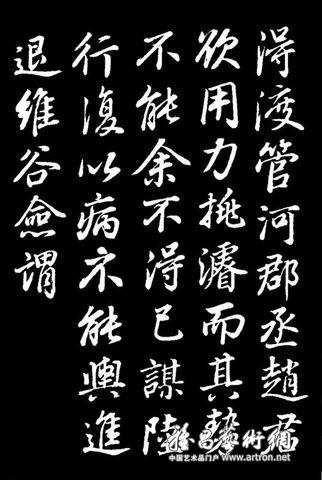 得渡管河郡丞趙君
欲用力挑濬而其勢
不能余不得已謀陸
行復以病不能輿進
退維谷僉謂
雅昌藝術網
中国艺术品门户 www.artron.net